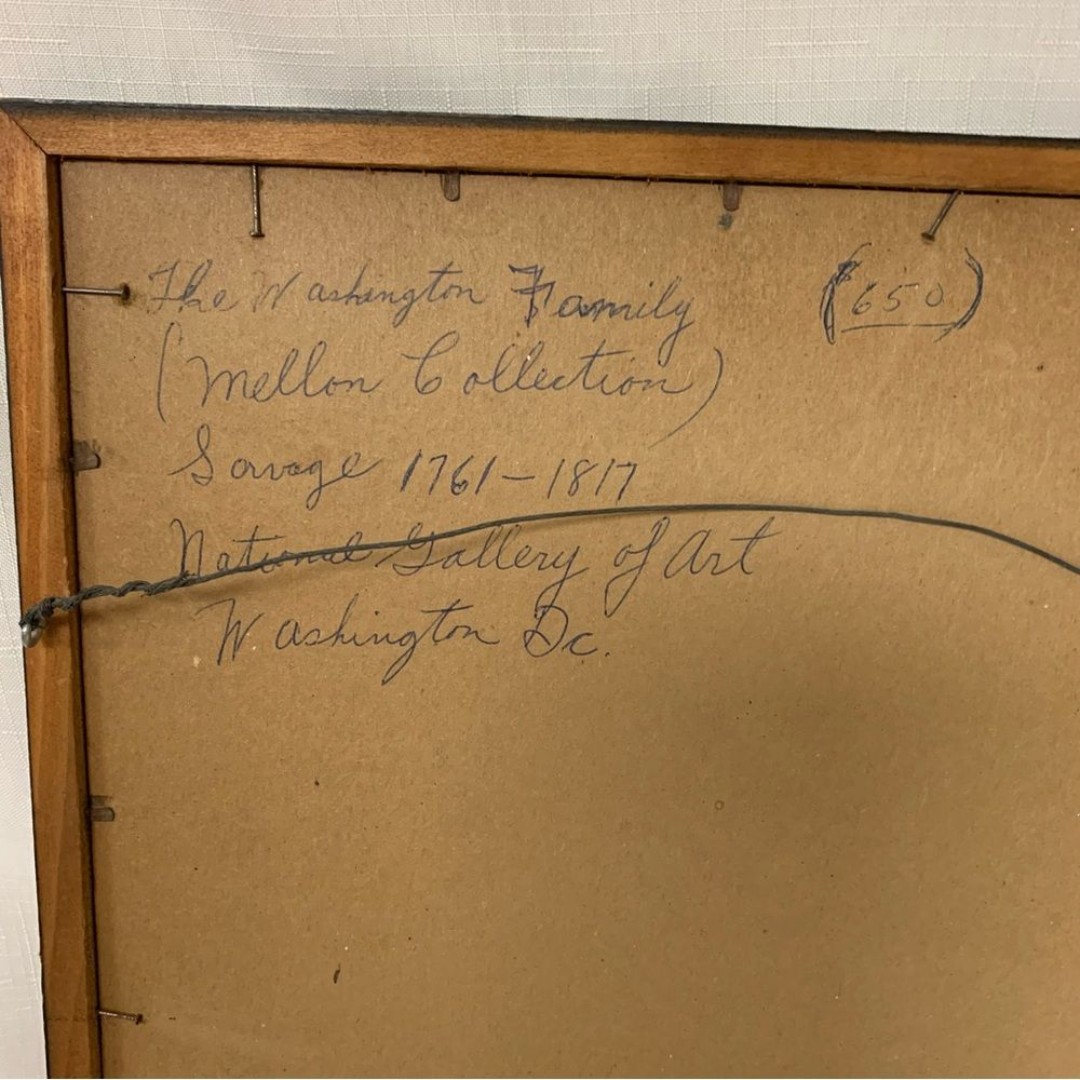 The Washington Family (650)
(Mellon Collection)
Savage 1761-1817
National Gallery of Art
Washington Dc.